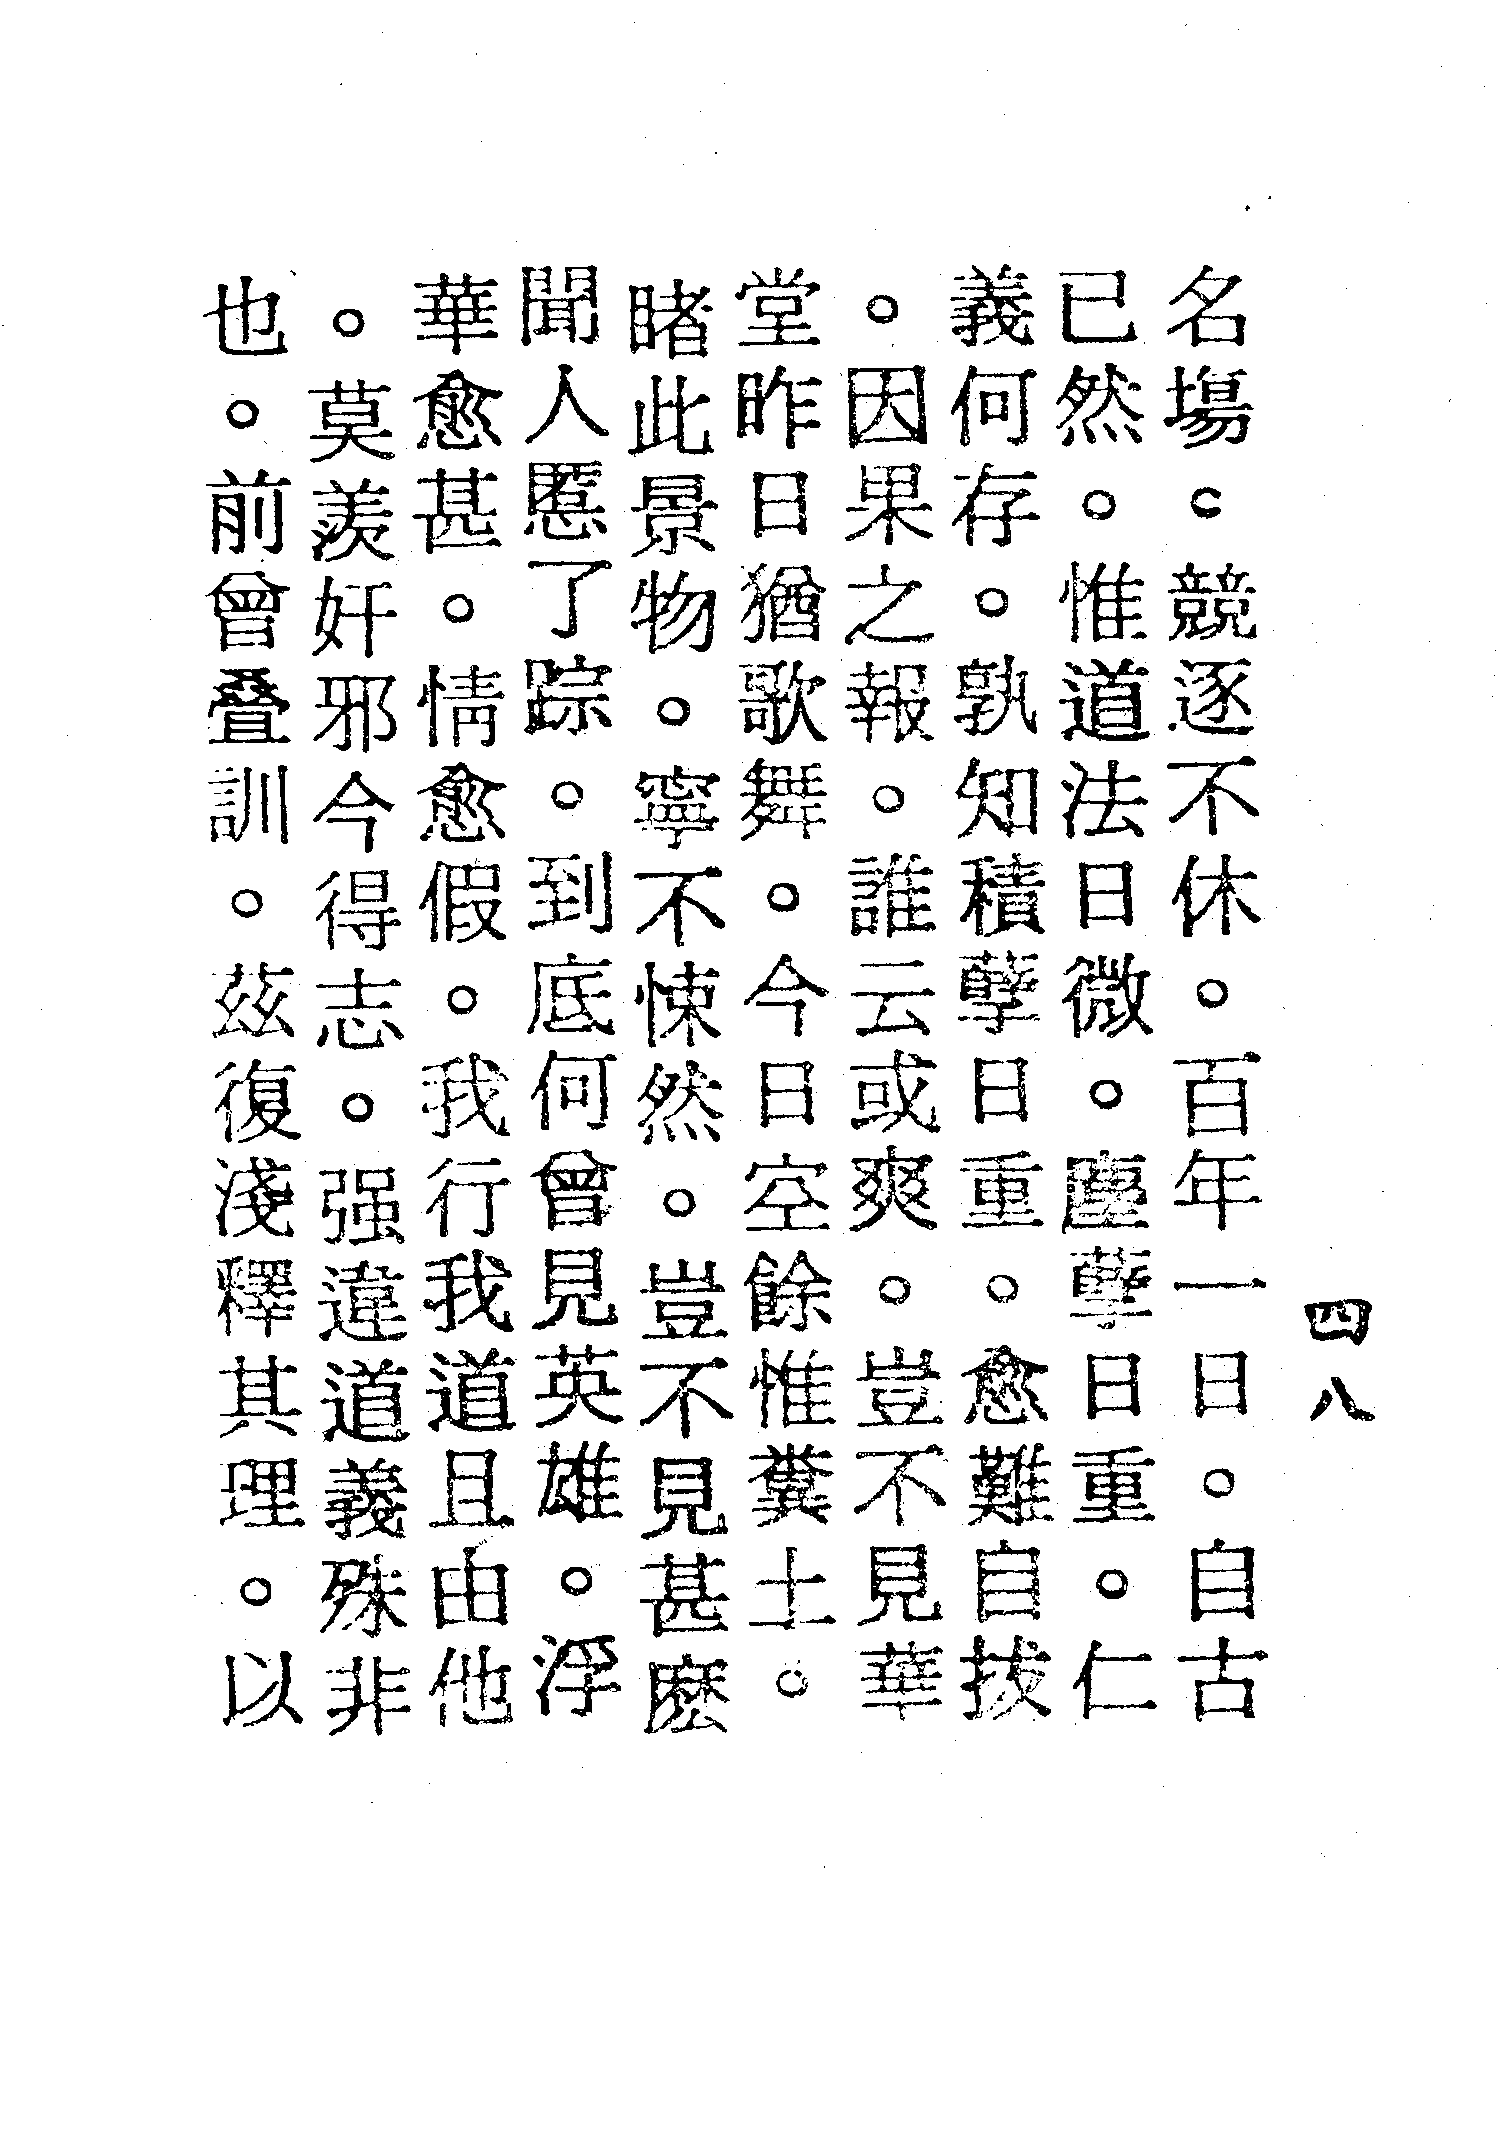 四八
名塲。競逐不休。百年一日。自古
已然。惟道法日微。塵孽日重。仁
義何存。孰知積孽日重。愈難自拔
。因果之報。誰云或爽。豈不見華
堂昨日猶歌舞。今日空餘惟糞土。
睹此景物。寧不悚然。豈不見甚麽
聞人慝了踪。到底何曾見英雄。浮
華愈甚。情愈假。我行我道且由他
。莫羨奸邪今得志。强違道義殊非
也。前曾叠訓。茲復淺釋其理。以